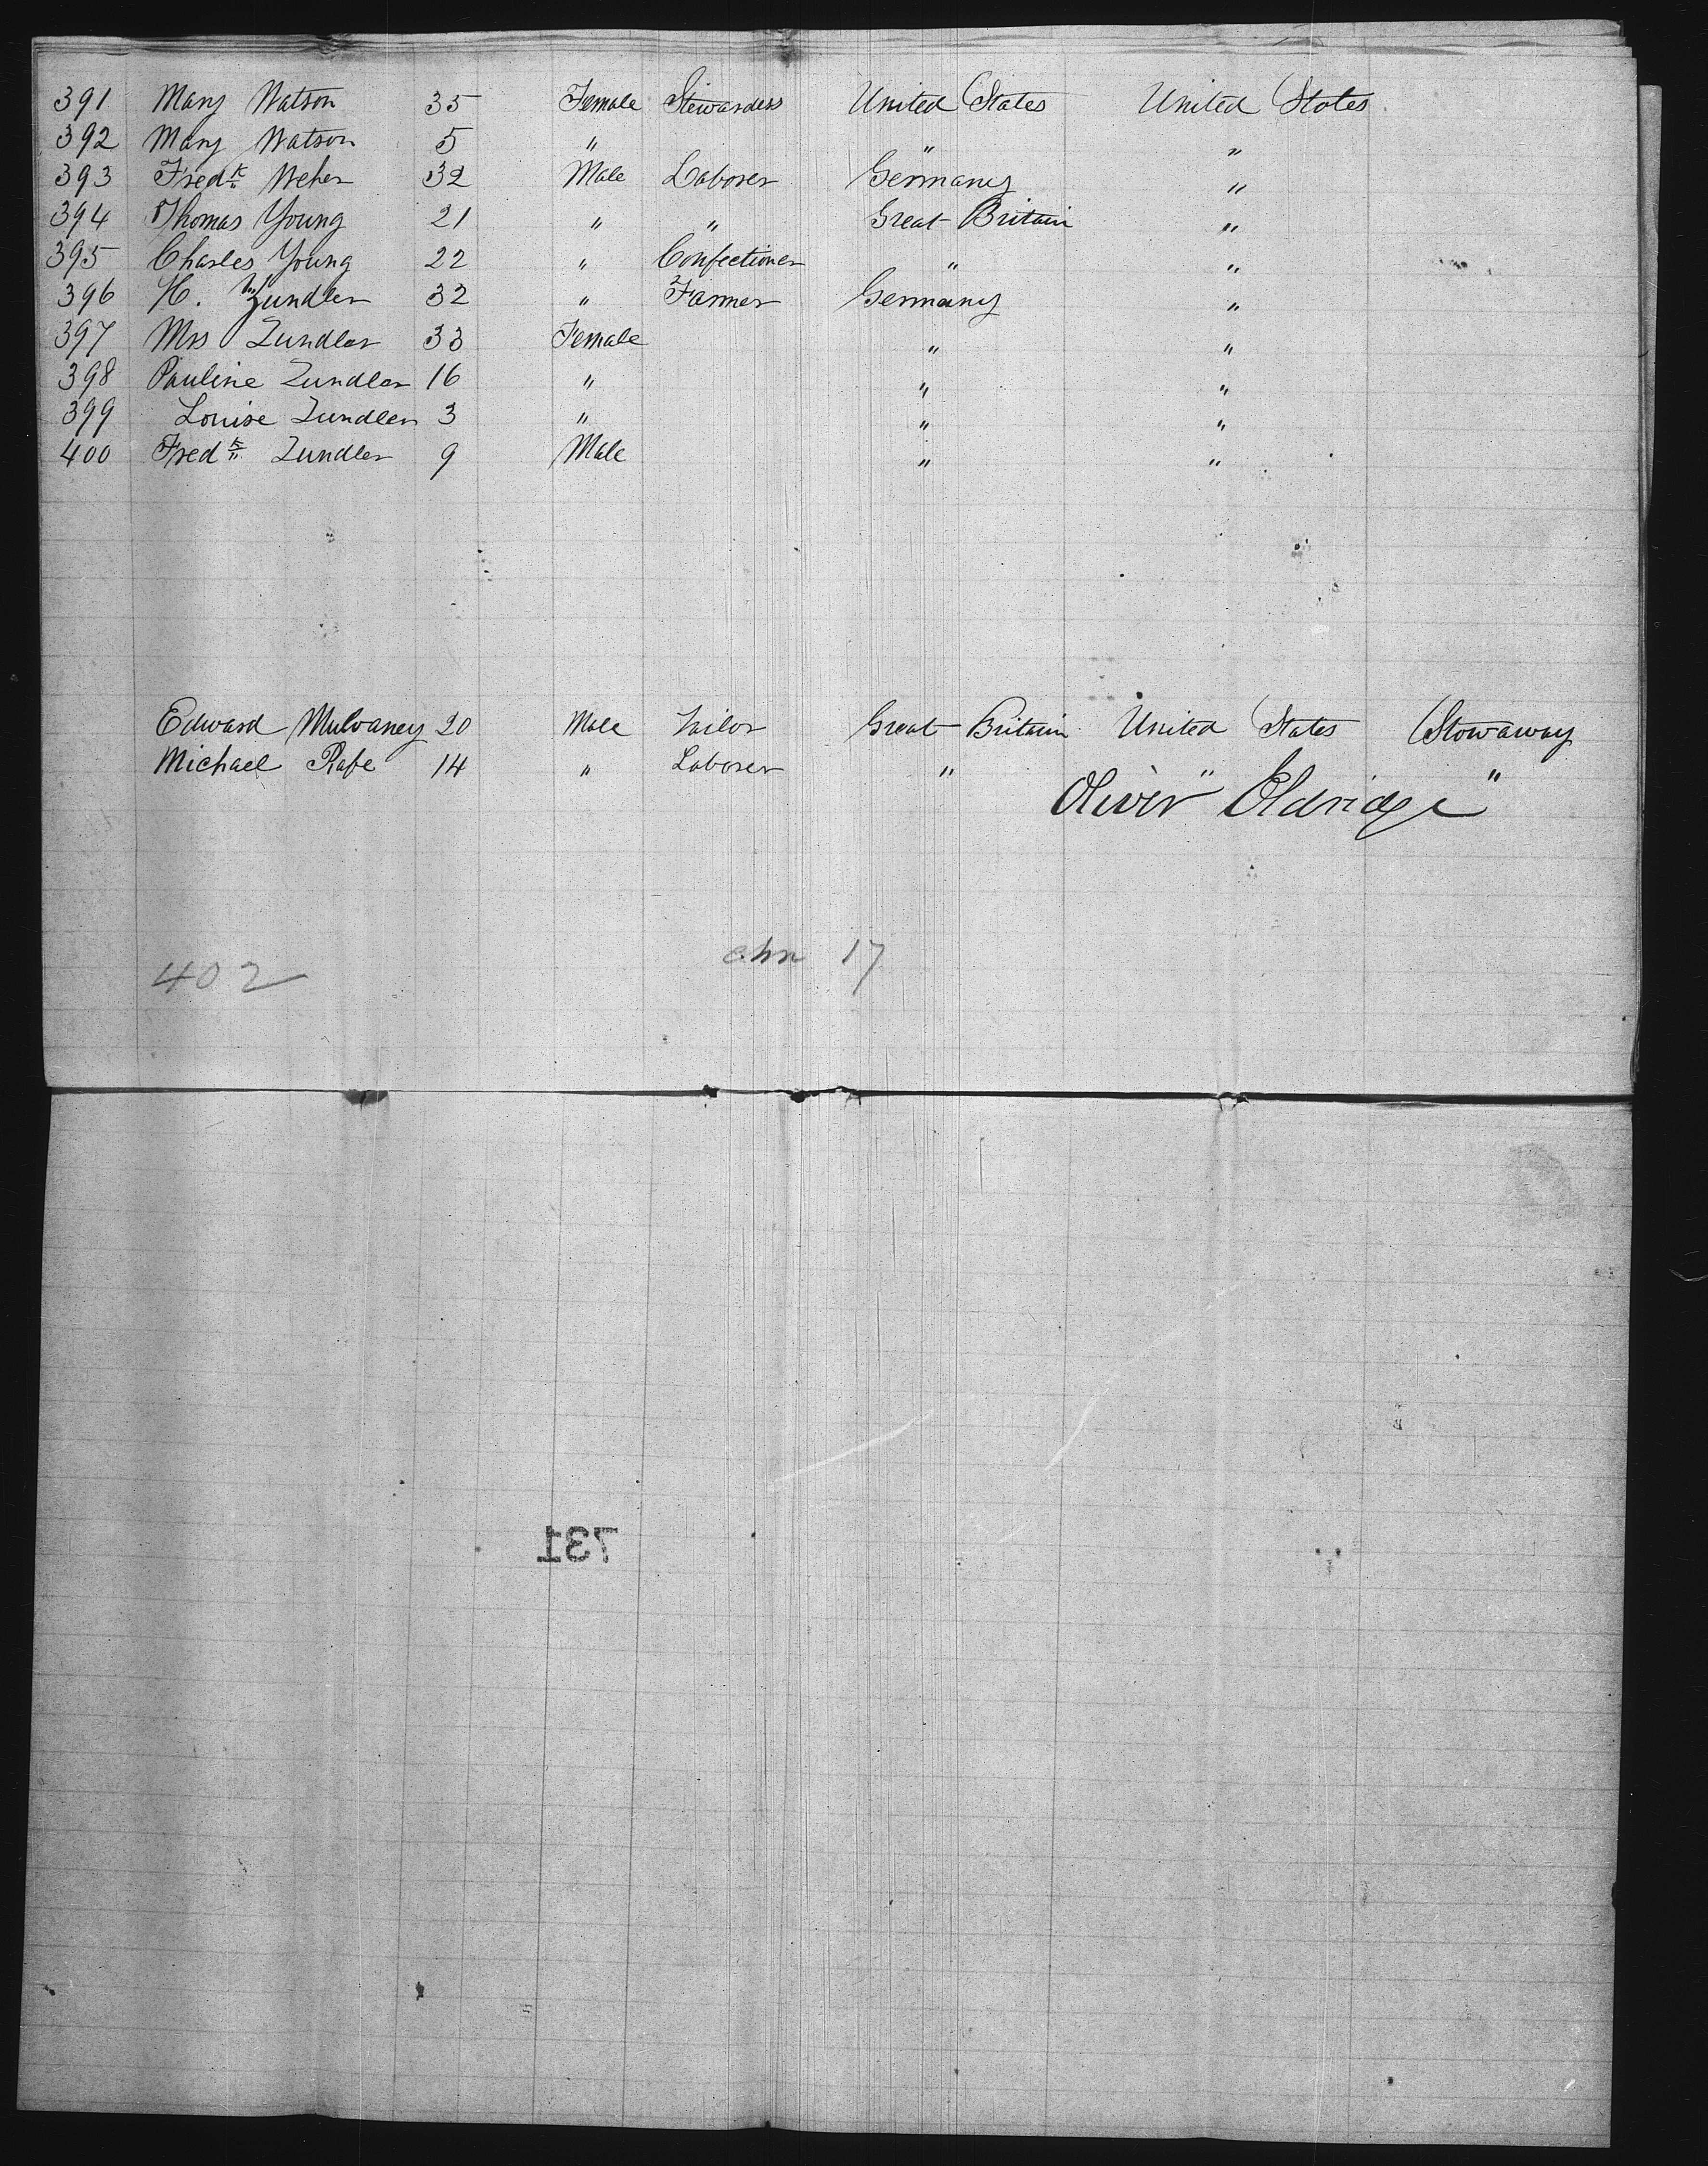 391 Mary Watson 35 Female Stewardess United States United States
392 Mary Watson 5 " " "
393 Fredk Weher 32 Male Laborer Germany "
394 Thomas Young 21 " " Great Britain "
395 Charles Young 22 " Confectioner " "
396 H. Zundler 32 " Farmer Germany "
397 Mrs Zundler 33 Female " "
398 Pauline Zundler 16 " " "
399 Louise Zundler 3 " " "
400 Fredk Zundler 9 Male " "
Edward Mulvaney 20 Male Tailor Great Britain United States Stowaway
Michael Rafe 14 " Laborer " " "
Oliver Eldridge
402 chn 17
731